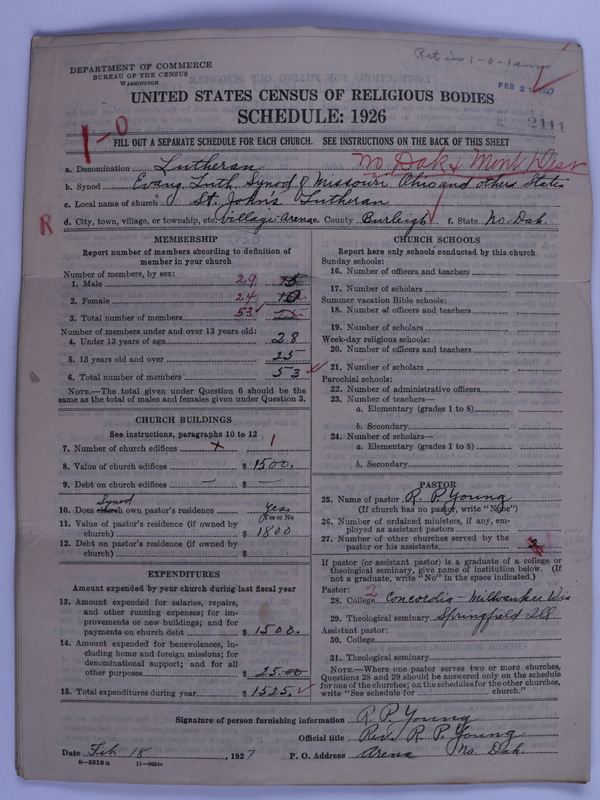 DEPARTMENT OF COMMERCE
BUREAU OF THE CENSUS
WASHINGTON
FEB 2 1927
UNITED STATES CENSUS OF RELIGIOUS BODIES
SCHEDULE: 1926
2111
1-0
FILL OUT A SEPARATE SCHEDULE FOR EACH CHURCH. SEE INSTRUCTIONS ON THE BACK OF THIS SHEET
a. Denomination Lutheran No Dak & Mont Dist
b. Synod Evang. Luth. Synod of Missouri Ohio and others States
c. Local name of church St. John's Lutheran
R
d. City, town, village, or township, etc. Village Arena e. County Burleigh f. State No. Dak.
MEMBERSHIP
Report number of members according to definition of
member in your church
Number of members, by sex:
1. Male 29
2. Female 24
3. Total number of members 53
Number of members under and over 13 years old:
4. Under 13 years of age 28
5. 13 years old and over 25
6. Total number of members 53
NOTE.—The total given under Question 6 should be the
same as the total of males and females given under Question 3.
CHURCH BUILDINGS
See instructions, paragraphs 10 to 12
7. Number of church edifices x 1
8. Value of church edifices $ 1500.
9. Debt on church edifices — $ —
Synod
10. Does church own pastor's residence Yes
(Yes or No)
11. Value of pastor's residence (if owned by
church) $ 1800
12. Debt on pastor's residence (if owned by
church) $
EXPENDITURES
Amount expended by your church during last fiscal year
13. Amount expended for salaries, repairs,
and other running expenses; for im-
provements or new buildings; and for
payments on church debt $ 1500.
14. Amount expended for benevolences, in-
cluding home and foreign missions; for
denominational support; and for all
other purposes $ 25.00
15. Total expenditures during year $ 1525.
CHURCH SCHOOLS
Report here only schools conducted by this church
Sunday schools:
16. Number of officers and teachers
17. Number of scholars
Summer vacation Bible schools:
18. Number of officers and teachers
19. Number of scholars
Week-day religious schools:
20. Number of officers and teachers
21. Number of scholars
Parochial schools:
22. Number of administrative officers
23. Number of teachers—
a. Elementary (grades 1 to 8)
b. Secondary
24. Number of scholars—
a. Elementary (grades 1 to 8)
b. Secondary
PASTOR
25. Name of pastor R. P. Young
(If church has no pastor, write "None")
26. Number of ordained ministers, if any, em-
ployed as assistant pastors
27. Number of other churches served by the
pastor or his assistants
If pastor (or assistant pastor) is a graduate of a college or
theological seminary, give name of institution below. (If
not a graduate, write "No" in the space indicated.)
Pastor:
28. College 2 Concordia - Milwaukee Wis
29. Theological seminary Springfield Ill
Assistant pastor:
30. College
31. Theological seminary
NOTE.—Where one pastor serves two or more churches,
Questions 28 and 29 should be answered only on the schedule
for one of the churches; on the schedules for the other churches,
write "See schedule for church."
Signature of person furnishing information R. P. Young
Official title Rev. R. P. Young
Date Feb 18, 1927 P. O. Address Arena No. Dak.
8-5518 a